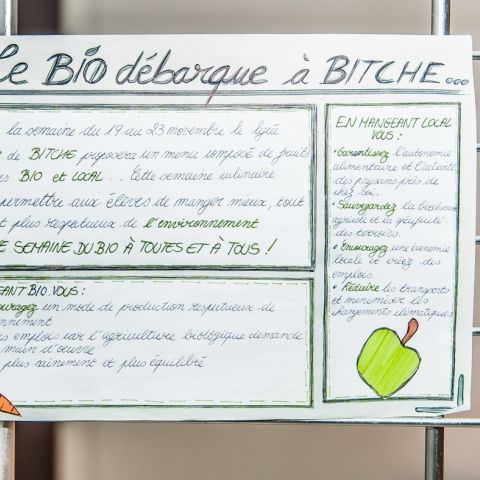 Le BIO débarque à BITCHE...
la semaine du 19 au 23 novembre le lycée
de BITCHE proposera un menu composé de fruits
BIO et LOCAL ... Cette semaine culinaire
permettre aux élèves de manger mieux, tout
plus respectueux de l'environnement
E SEMAINE DU BIO À TOUTES ET À TOUS !
EANT BIO VOUS :
ouragez un mode de production respectueux de
onnement
es emplois car l'agriculture biologique demande
main d'œuvre
plus sainement et plus équilibré
EN MANGEANT LOCAL
VOUS :
• Garantissez l'autonomie
alimentaire et l'activité
des paysans près de
chez soi.
• Sauvegardez la biodiversité
agricole et la spécificité
des terroirs.
• Encouragez une économie
locale et créez des
emplois
• Réduire les transports
et minimiser les
changements climatiques